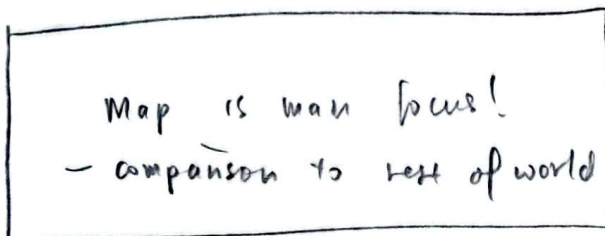 Map is main focus!
– comparison to rest of world